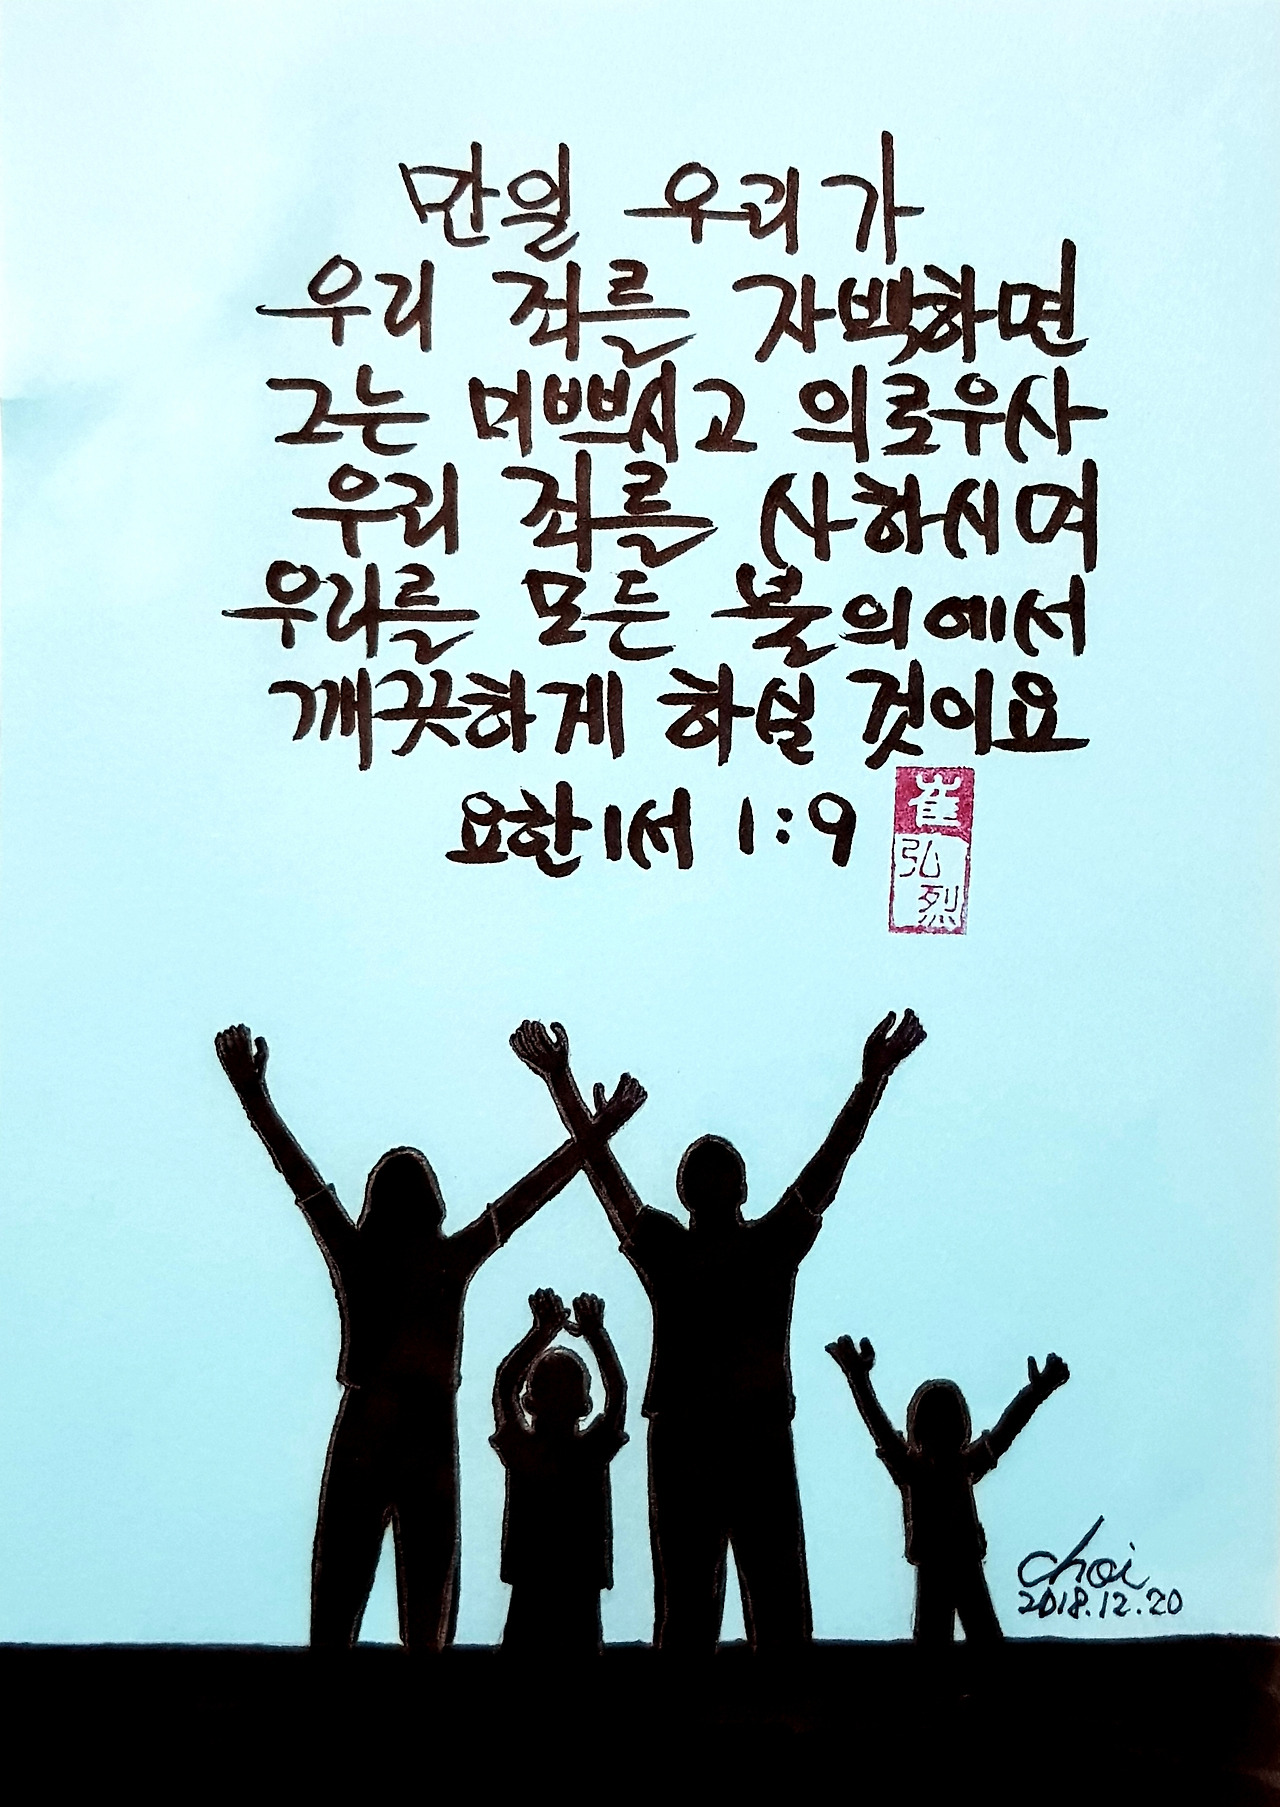 만일 우리가
우리 죄를 자백하면
그는 미쁘시고 의로우사
우리 죄를 사하시며
우리를 모든 불의에서
깨끗하게 하실 것이요
요한1서 1:9
崔
弘
烈
choi
2018.12.20